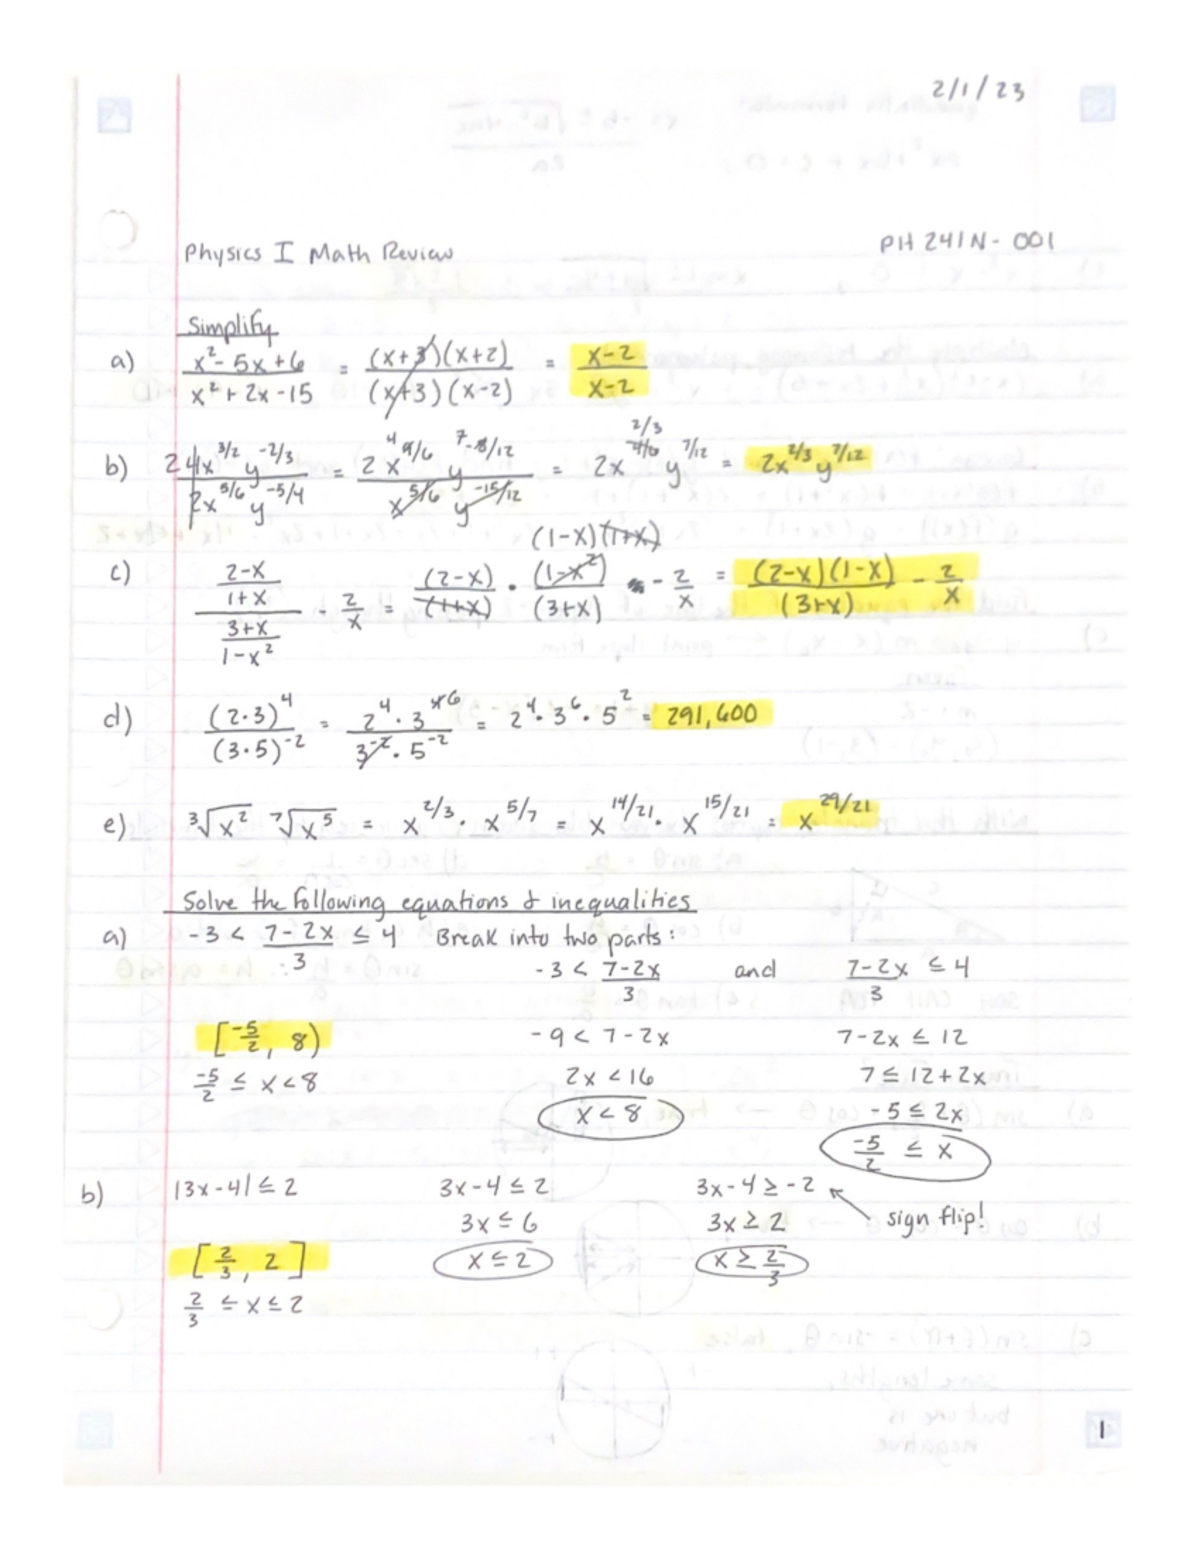 2/1/23
Physics I Math Review PH 241N - 001
Simplify
a) (x² - 5x + 6)/(x² + 2x - 15) = ((x+3)(x+2))/((x+3)(x-2)) = (x-2)/(x-2)
b) 2 4x^(3/2) y^(-2/3) / 2x^(5/6) y^(-5/4) = 2x^(4 9/6) y^(7 -8/12) / x^(5/6) y^(-15/12) = 2x^(2/3 4/6) y^(7/12) = 2x^(2/3) y^(7/12)
(1-x)(1+x)
c) ((2-x)/(1+x))/((3+x)/(1-x²)) - 2/x = (2-x)/(1+x) · (1-x²)/(3+x) - 2/x = ((2-x)(1-x))/(3+x) - 2/x
d) (2·3)⁴/(3·5)⁻² = 2⁴·3^(4 6)/(3⁻²·5⁻²) = 2⁴·3⁶·5² = 291,600
e) ³√x² ⁷√x⁵ = x^(2/3) · x^(5/7) = x^(14/21) · x^(15/21) = x^(29/21)
Solve the following equations & inequalities
a) -3 < (7-2x)/3 ≤ 4 Break into two parts:
-3 < (7-2x)/3 and (7-2x)/3 ≤ 4
[-5/2, 8) -9 < 7-2x 7-2x ≤ 12
-5/2 ≤ x < 8 2x < 16 7 ≤ 12+2x
x < 8 -5 ≤ 2x
-5/2 ≤ x
b) |3x-4| ≤ 2 3x-4 ≤ 2 3x-4 ≥ -2
3x ≤ 6 3x ≥ 2 sign flip!
[2/3, 2] x ≤ 2 x ≥ 2/3
2/3 ≤ x ≤ 2
1